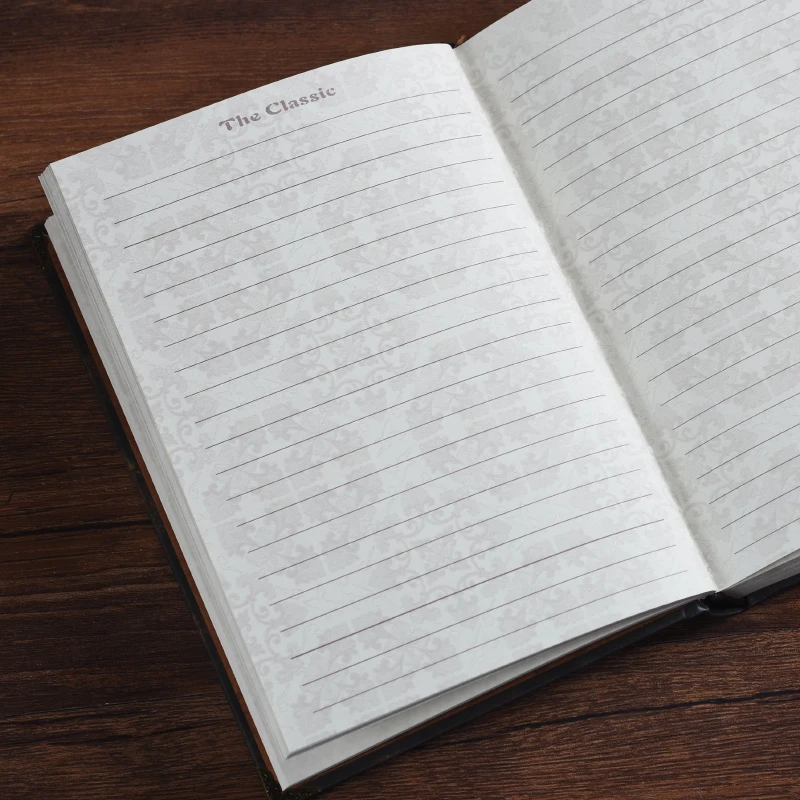 The Classic